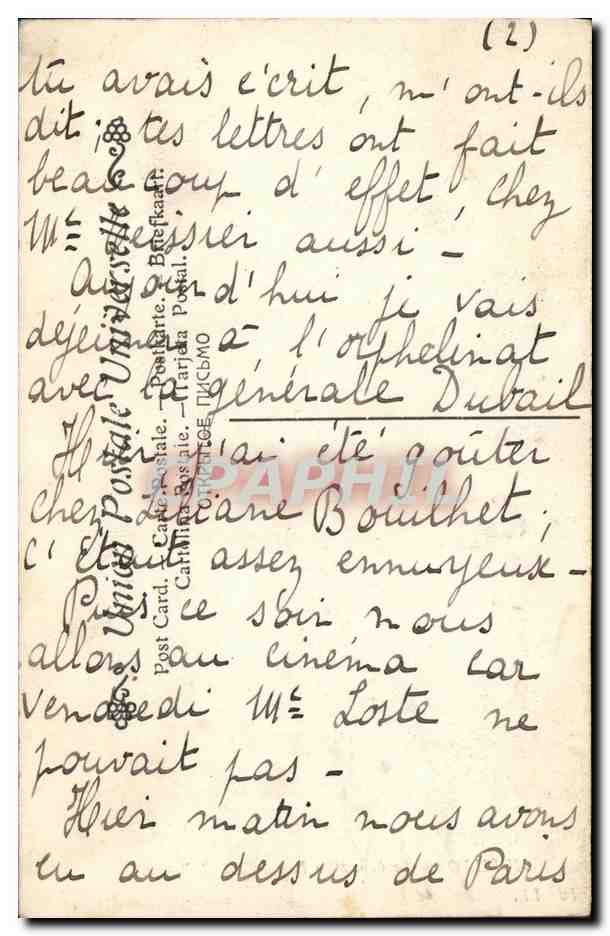 (2)
tu avais écrit, m'ont-ils
dit; tes lettres ont fait
beaucoup d'effet, chez
Mc aussi -
Aujourd'hui je vais
déjeuner à l'orphelinat
avec la générale Dubail
Hier j'ai été goûter
chez Liliane Bouilhet,
c'était assez ennuyeux -
Puis ce soir nous
allons au cinéma car
vendredi Mc Loste ne
pouvait pas -
Hier matin nous avons
eu au dessus de Paris
Union Postale Universelle
Post Card. - Carte Postale. - Postkarte. - Briefkaart.
Cartolina Postale. - Tarjeta Postal.
ОТКРЫТОЕ ПИСЬМО
CPAPHIL